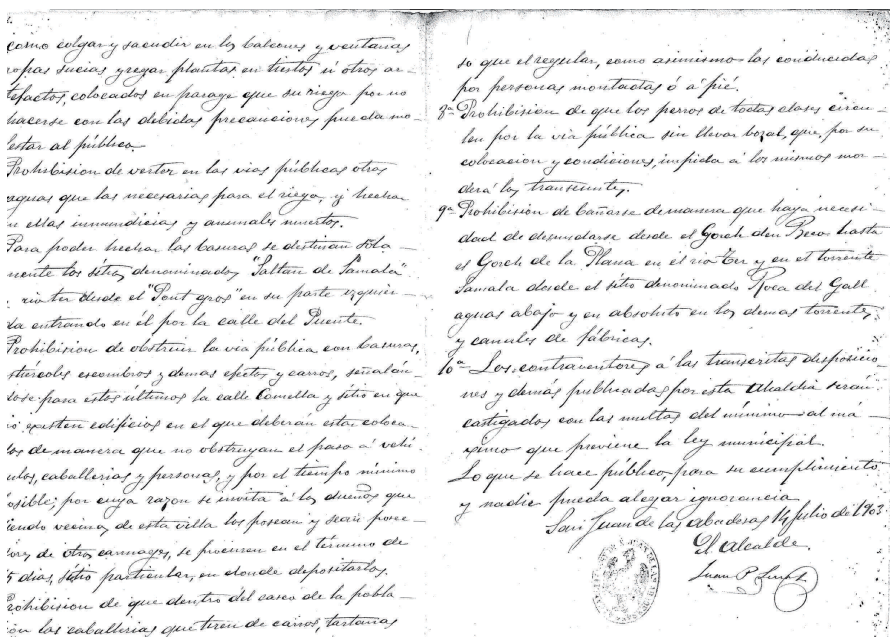 como colgar y sacudir en los balcones y ventanas
ropas sucias y regar plantas en tiestos ú otros ar-
tefactos, colocados en parage que su riego por no
hacerse con las debidas precauciones pueda mo-
lestar al público.
Prohibision de verter en las vias públicas otras
aguas que las necesarias para el riego, y hechar
n ellas inmundicias y animales muertos.
Para poder hechar las basuras se destinan sola-
mente los sitios denominados "Saltan de Samala"
rio ter desde el "Pont gros" en su parte izquier-
da entrando en él por la calle del Puente.
Prohibision de obstruir la via pública con basuras,
stiercoles escombros y demas efectos y carros, señalán-
dose para estos últimos la calle Comella y sitio en que
no existen edificios en el que deberán estar coloca-
dos de manera que no obstruyan el paso á vehi-
culos, caballerias y personas, y por el tiempo minimo
posible; por cuya razon se invita á los dueños que
siendo vecinos de esta villa los posean y sean posee-
dores de otros carruages, se procuren en el término de
5 dias, sitio particular, en donde depositarlos.
Prohibision de que dentro del casco de la pobla-
ion las caballerias que tiren de carros, tartanas
so que el regular, como asimismo las conducidas
por personas montadas ó á pié.
8ª Prohibision de que los perros de todas clases circu-
len por la via pública sin llevar bozal, que, por su
colocacion y condiciones, impida á los mismos mor-
derá los transeuntes.
9ª Prohibision de bañarse de manera que haya necesi-
dad de desnudarse desde el Gorch den Beco hasta
el Gorch de la Plana en el rio Ter y en el torrente
Samala desde el sitio denominado Roca del Gall
aguas abajo y en absoluto en los demas torrentes
y canales de fábricas.
10ª Los contraventores á las transcritas disposicio-
nes y demás publicadas por esta Alcaldia serán
castigados con las multas del minimo al má-
ximo que previene la ley municipal.
Lo que se hace público, para su cumplimiento
y nadie pueda alegar ignorancia.
San Juan de las Abadesas 14 Julio de 1903.
El Alcalde.
Juan P.